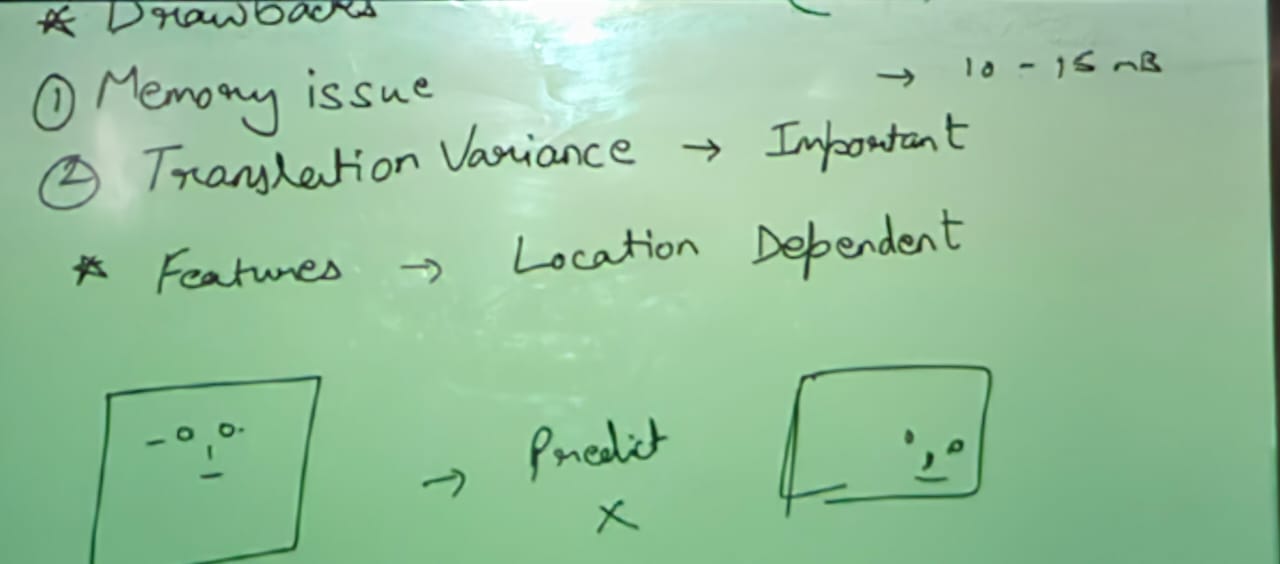 * Drawbacks
① Memory issue → 10 - 15 mB
② Translation Variance → Important
* Features → Location Dependent
→ Predict
X